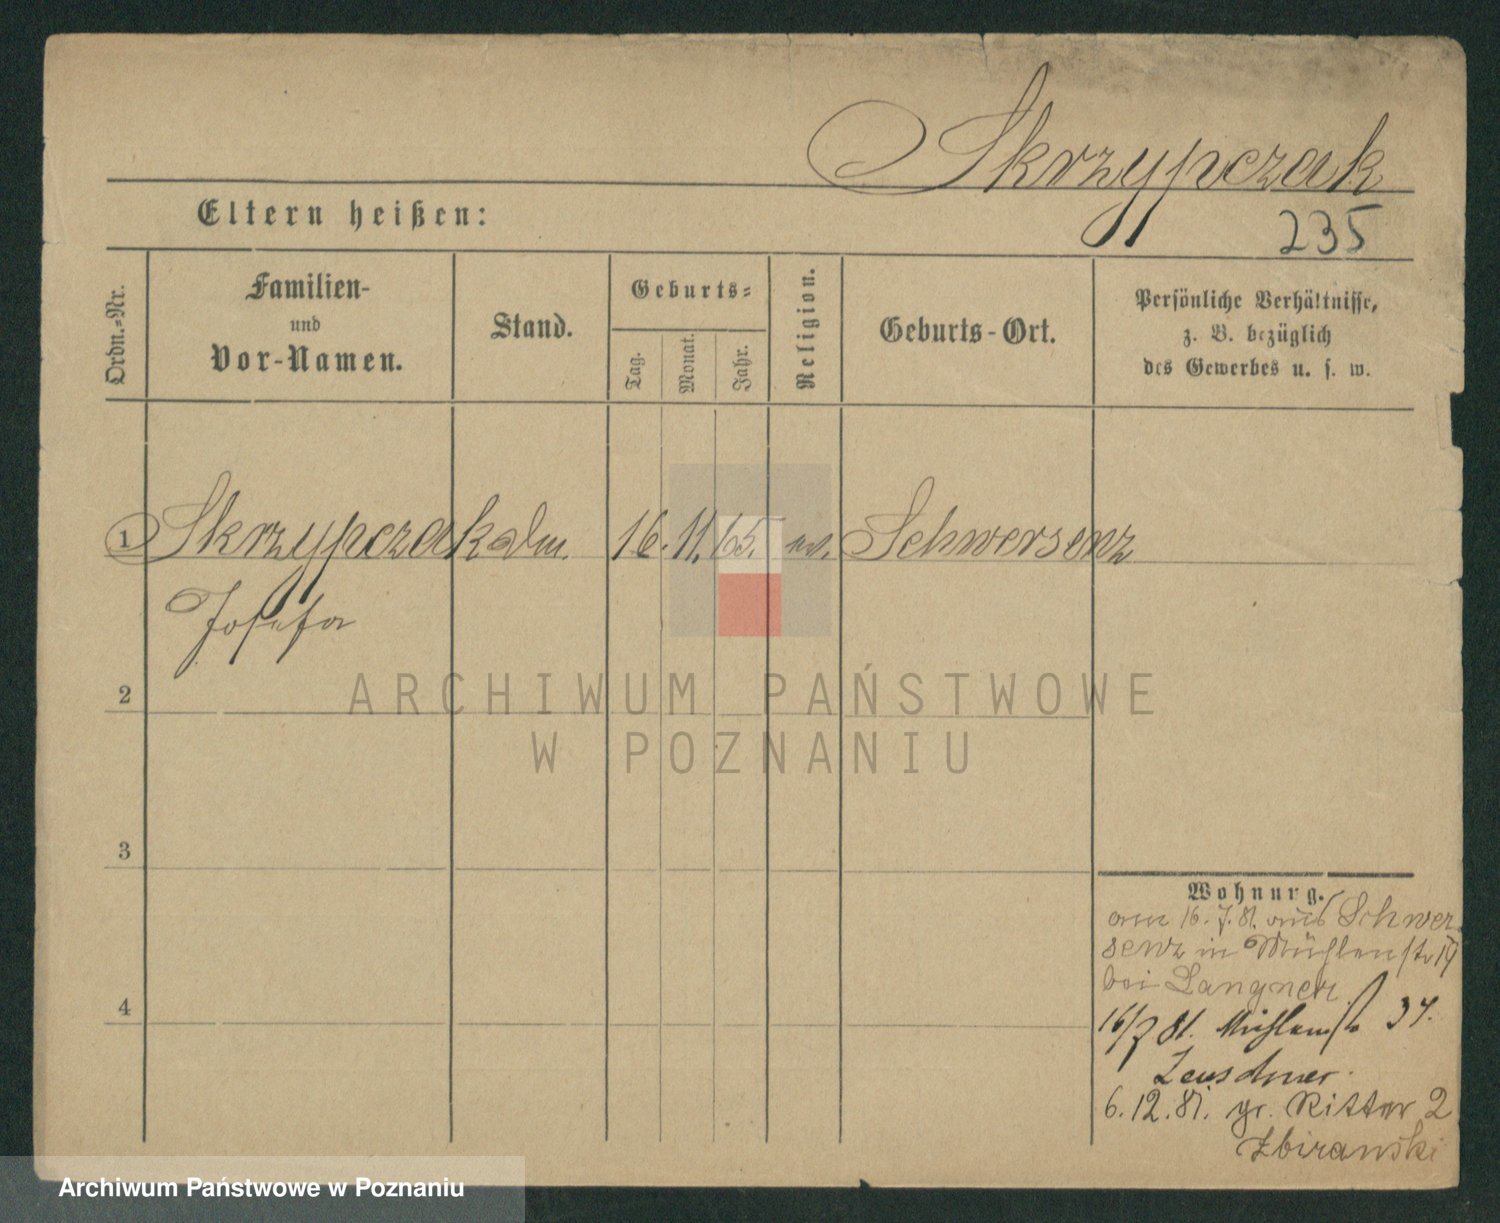 Skrzypczak
Eltern heißen:
235
Ordn.-Nr.
Familien-
und
Vor-Namen.
Stand.
Geburts-
Tag.
Monat.
Jahr.
Religion.
Geburts-Ort.
Persönliche Verhältnisse,
z. B. bezüglich
des Gewerbes u. s. w.
1 Skrzypczak 16. 11. 65. Schwersenz
Josefa
2
ARCHIWUM PAŃSTWOWE
W POZNANIU
3
4
Wohnung.
am 16.7.81. aus Schwer
senz in Mühlenstr 19
bei Langner
16/7 81. Mühlenstr 37.
Zeuschner.
6.12.81. gr. Ritter 2
Zbiranski
Archiwum Państwowe w Poznaniu